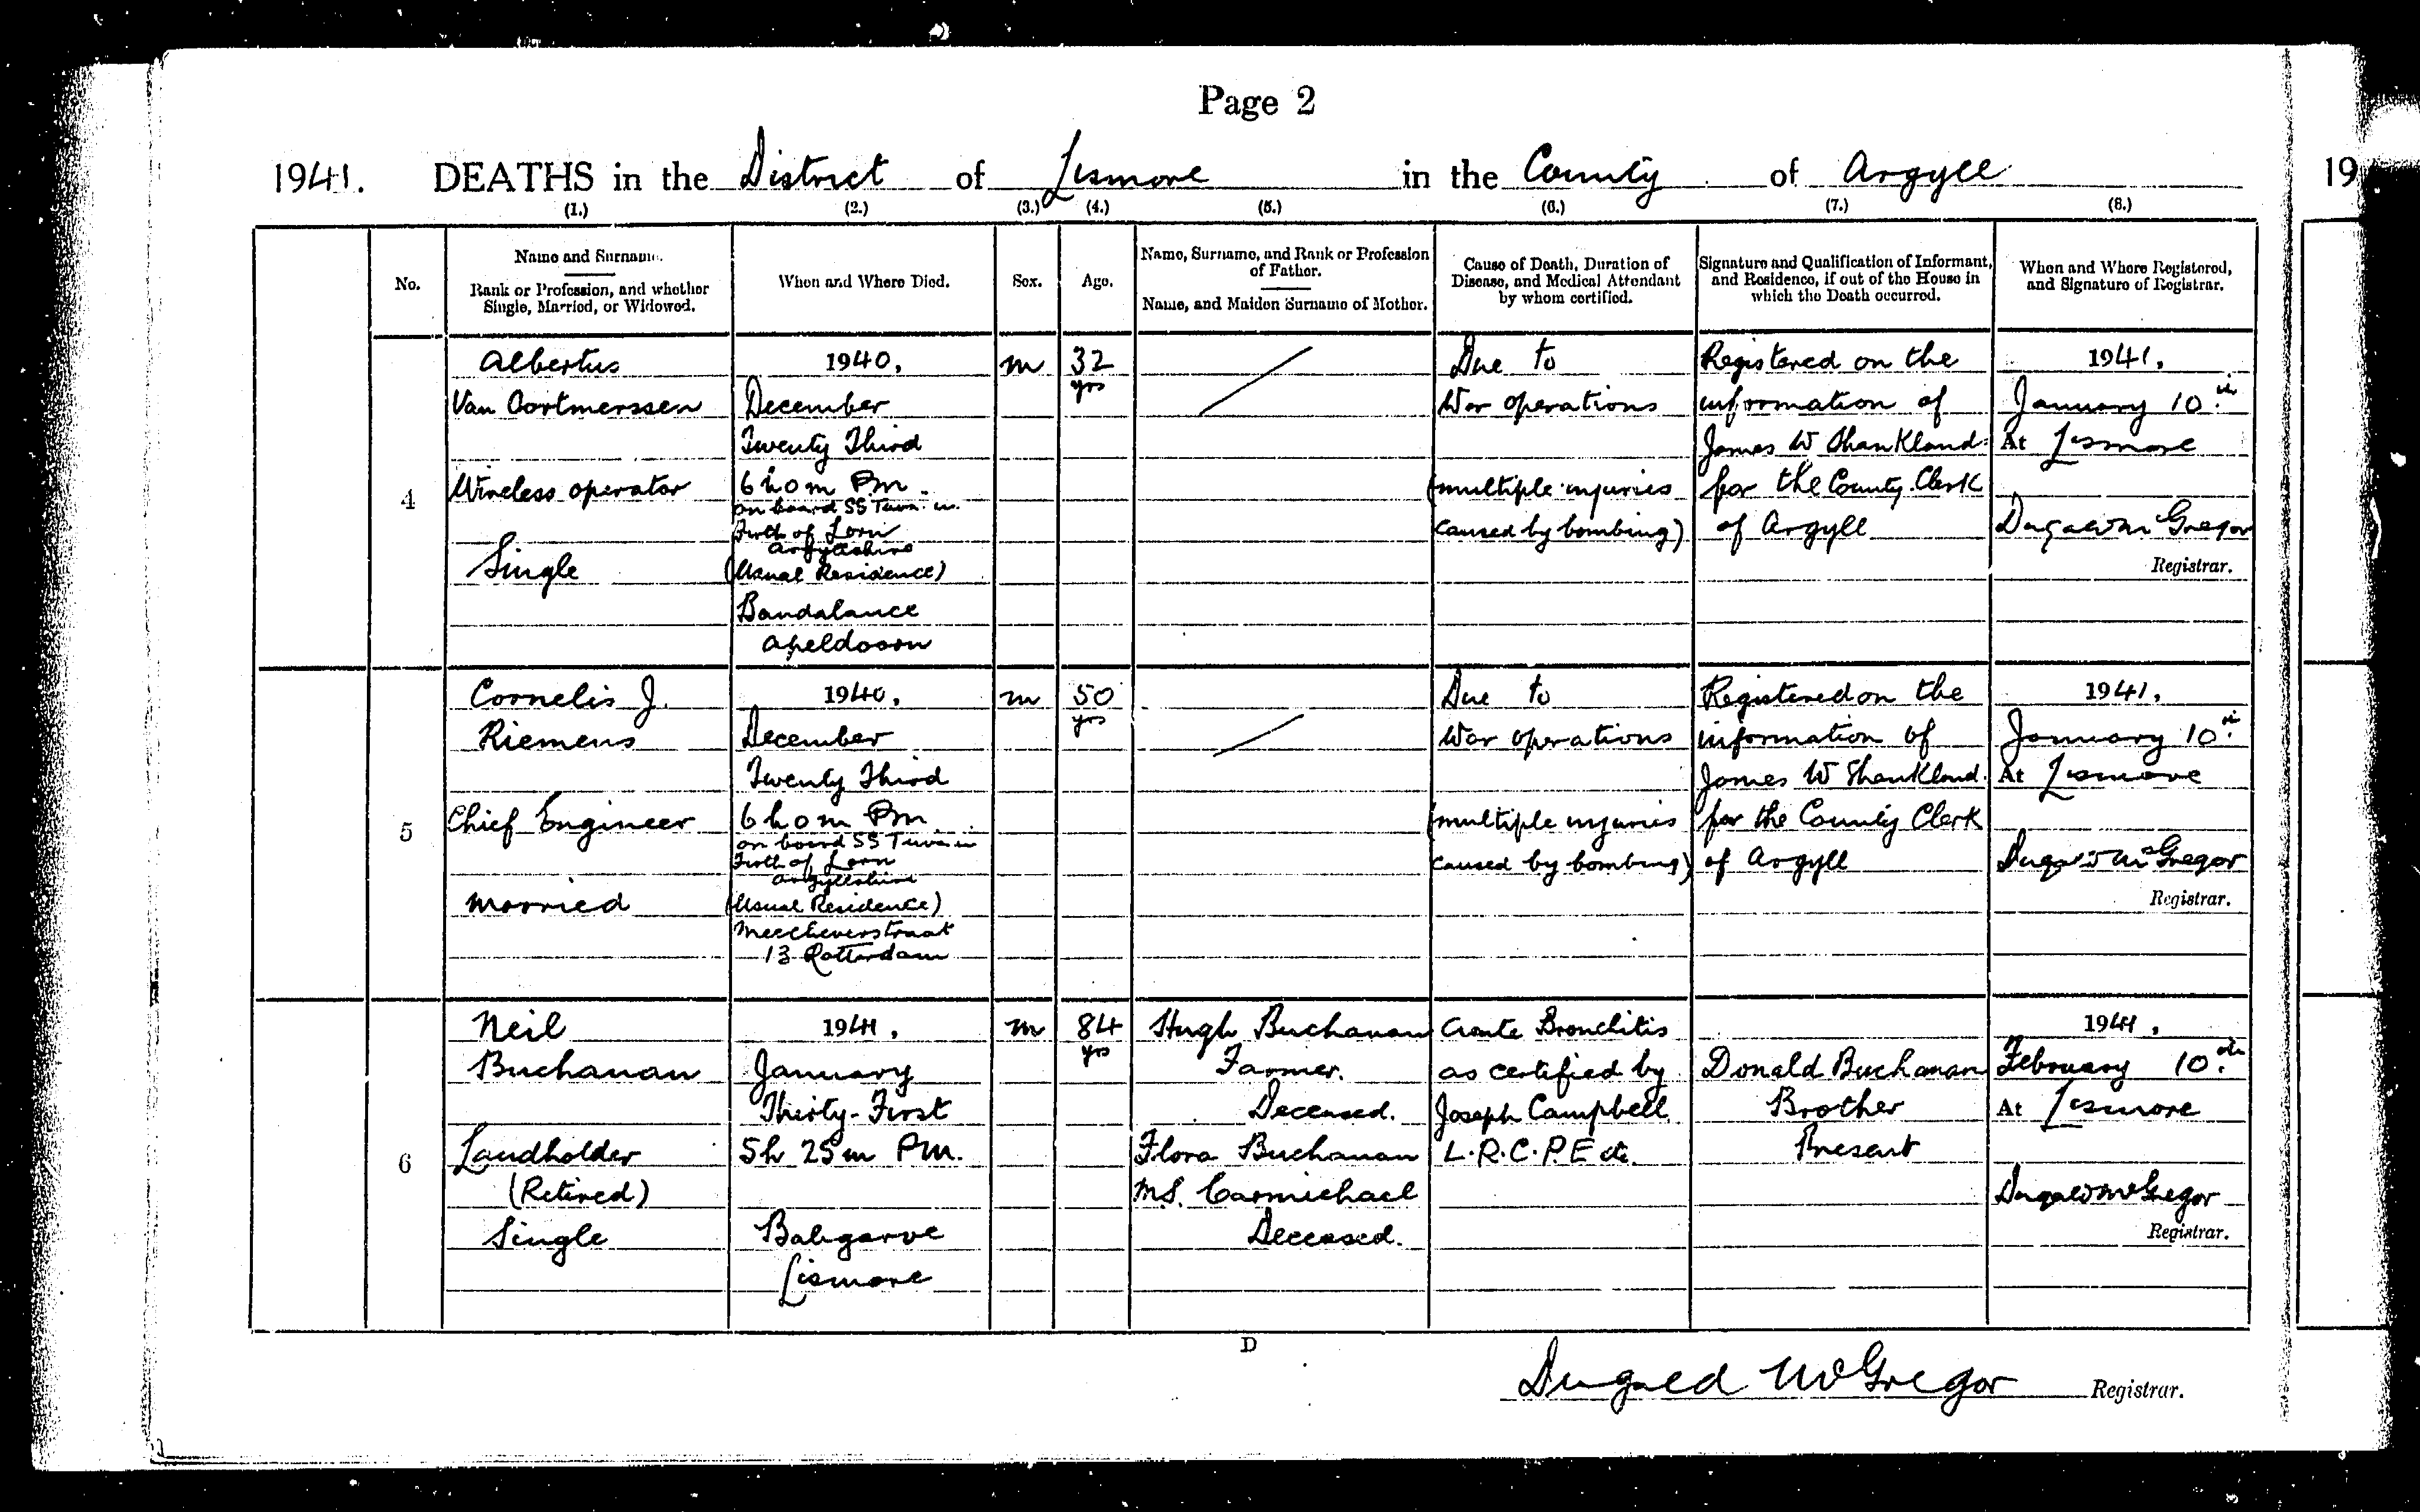 Page 2
1941. DEATHS in the District of Lismore in the County of Argyll
19
(1.) (2.) (3.) (4.) (5.) (6.) (7.) (8.)
No.
Name and Surname.
Rank or Profession, and whether
Single, Married, or Widowed.
When and Where Died.
Sex.
Age.
Name, Surname, and Rank or Profession
of Father.
Name, and Maiden Surname of Mother.
Cause of Death, Duration of
Disease, and Medical Attendant
by whom certified.
Signature and Qualification of Informant,
and Residence, if out of the House in
which the Death occurred.
When and Where Registered,
and Signature of Registrar.
4
Albertus
Van Oortmerssen
Wireless operator
Single
1940.
December
Twenty Third
6 h 0 m PM.
on board SS Tuva in
Firth of Lorn
Argyllshire
(Usual Residence)
Bandalance
Apeldoorn
M
32
yrs
Due to
War operations
(multiple injuries
caused by bombing)
Registered on the
information of
James W Shankland
for the County Clerk
of Argyll
1941.
January 10th
At Lismore
Dugald McGregor
Registrar.
5
Cornelis J.
Riemens
Chief Engineer
Married
1940.
December
Twenty Third
6 h 0 m PM.
on board SS Tuva in
Firth of Lorn
Argyllshire
(Usual Residence)
13 Rotterdam
M
50
yrs
Due to
War operations
(multiple injuries
caused by bombing)
Registered on the
information of
James W Shankland
for the County Clerk
of Argyll
1941.
January 10th
At Lismore
Dugald McGregor
Registrar.
6
Neil
Buchanan
Landholder
(Retired)
Single
1941.
January
Thirty-First
5h 25m PM.
Baligarve
Lismore
M
84
yrs
Hugh Buchanan
Farmer.
Deceased.
Flora Buchanan
M.S. Carmichael
Deceased.
Acute Bronchitis
as certified by
Joseph Campbell
L.R.C.P.E etc.
Donald Buchanan
Brother
Present
1941.
February 10th
At Lismore
Dugald McGregor
Registrar.
D
Dugald McGregor Registrar.